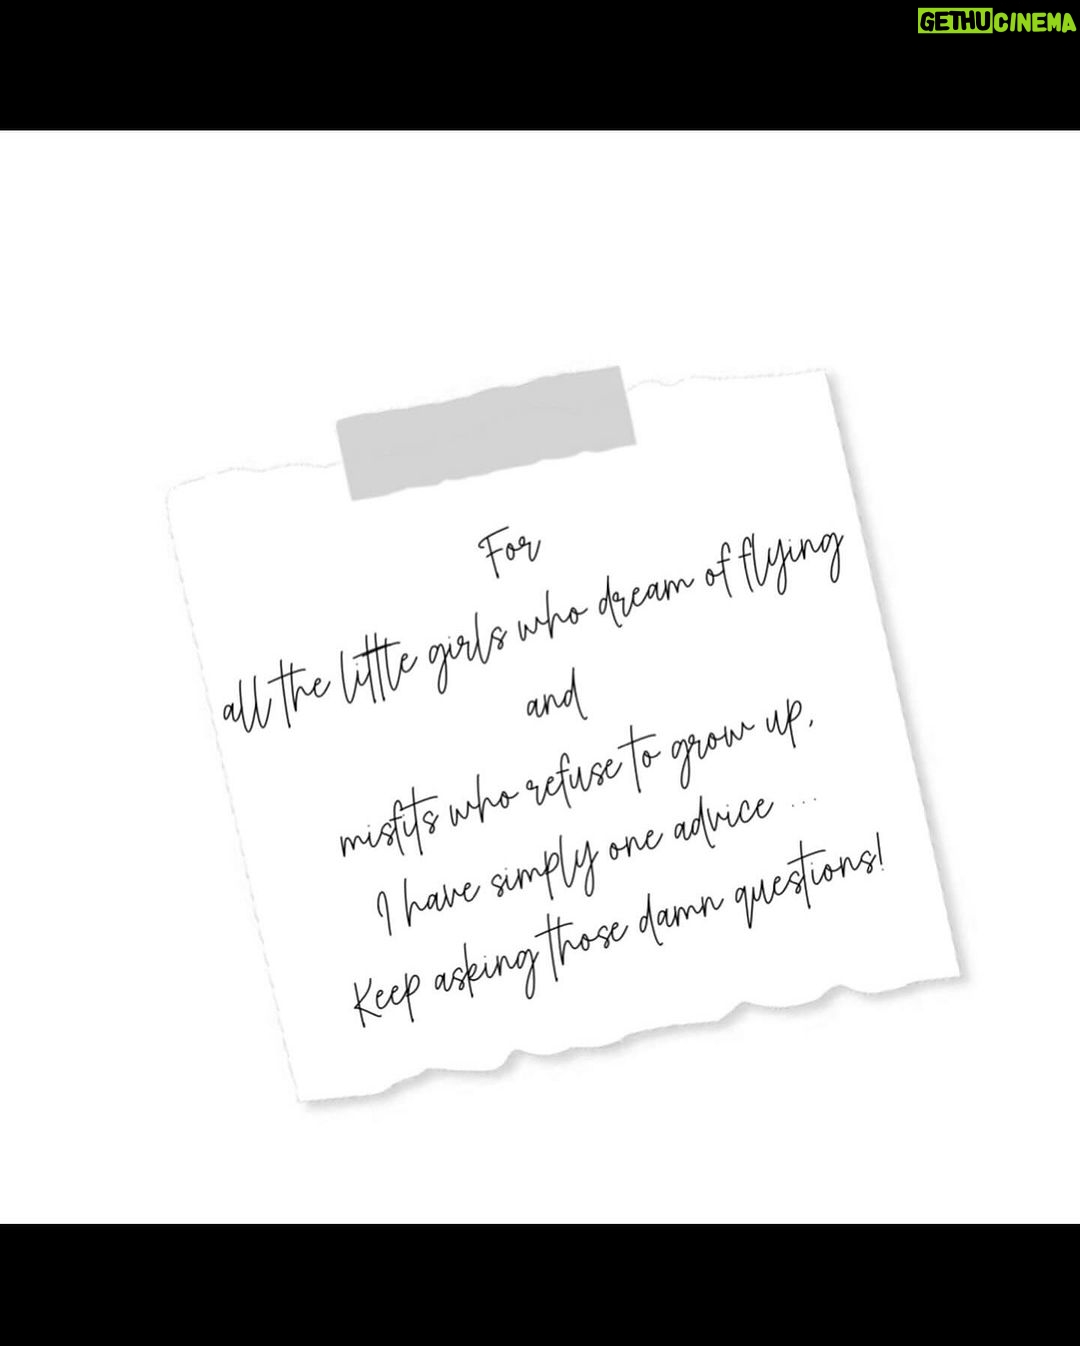 GETHUCINEMA
For
all the little girls who dream of flying
and
misfits who refuse to grow up,
I have simply one advice ...
Keep asking those damn questions!